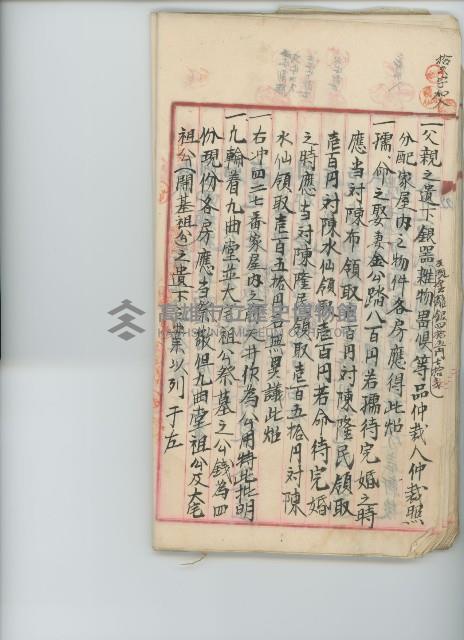 拾五字加入
一父親之遺下銀器粧物畏俱等品仲裁人仲裁照
分配家屋內之物件各房應得此炤
一孺、命之娶妻金公踏八百円若孺待完婚之時
應当対陳布領取　百円対陳隆民領取
壱百円対陳水仙領取壱百円若命待完婚
之時應当対陳隆民領取壱百五拾円対陳
水仙領取壱百五拾円各無異議此炤
一右冲四二七番家屋內之　天井作為公用特此批明
一九輪着九曲堂並大　祖公祭墓之公錢為四
份現份各房應当祭敬但九曲堂祖公及大宅
祖公(開基祖公之遺下　業以列于左
高雄市立歷史博物館